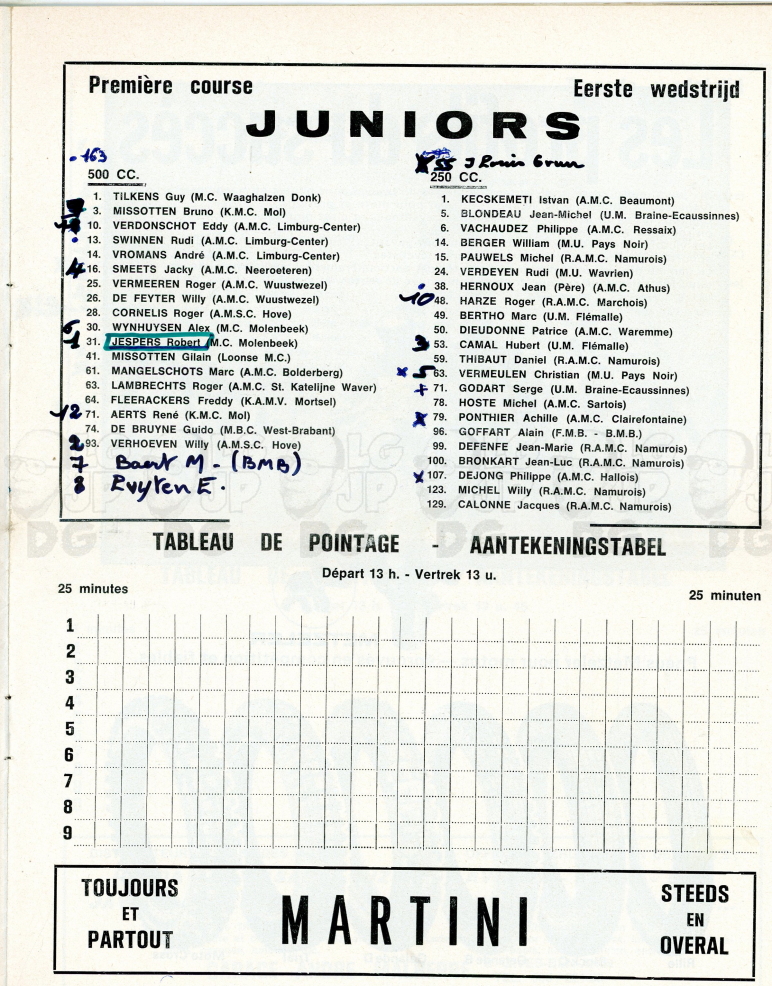 Première course
Eerste wedstrijd
JUNIORS
163
55 J Louis
500 CC.
1. TILKENS Guy (M.C. Waaghalzen Donk)
3. MISSOTTEN Bruno (K.M.C. Mol)
10. VERDONSCHOT Eddy (A.M.C. Limburg-Center)
13. SWINNEN Rudi (A.M.C. Limburg-Center)
14. VROMANS André (A.M.C. Limburg-Center)
4 16. SMEETS Jacky (A.M.C. Neeroeteren)
25. VERMEEREN Roger (A.M.C. Wuustwezel)
26. DE FEYTER Willy (A.M.C. Wuustwezel)
28. CORNELIS Roger (A.M.S.C. Hove)
6 30. WYNHUYSEN Alex (M.C. Molenbeek)
1 31. JESPERS Robert (M.C. Molenbeek)
41. MISSOTTEN Gilain (Loonse M.C.)
61. MANGELSCHOTS Marc (A.M.C. Bolderberg)
63. LAMBRECHTS Roger (A.M.C. St. Katelijne Waver)
64. FLEERACKERS Freddy (K.A.M.V. Mortsel)
12 71. AERTS René (K.M.C. Mol)
74. DE BRUYNE Guido (M.B.C. West-Brabant)
2 93. VERHOEVEN Willy (A.M.S.C. Hove)
7 Baert M - (BMB)
8 Ruyten E.
250 CC.
1. KECSKEMETI Istvan (A.M.C. Beaumont)
5. BLONDEAU Jean-Michel (U.M. Braine-Ecaussinnes)
6. VACHAUDEZ Philippe (A.M.C. Ressaix)
14. BERGER William (M.U. Pays Noir)
15. PAUWELS Michel (R.A.M.C. Namurois)
24. VERDEYEN Rudi (M.U. Wavrien)
38. HERNOUX Jean (Père) (A.M.C. Athus)
10 48. HARZE Roger (R.A.M.C. Marchois)
49. BERTHO Marc (U.M. Flémalle)
50. DIEUDONNE Patrice (A.M.C. Waremme)
3 53. CAMAL Hubert (U.M. Flémalle)
59. THIBAUT Daniel (R.A.M.C. Namurois)
x 5 63. VERMEULEN Christian (M.U. Pays Noir)
+ 71. GODART Serge (U.M. Braine-Ecaussinnes)
78. HOSTE Michel (A.M.C. Sartois)
x 79. PONTHIER Achille (A.M.C. Clairefontaine)
96. GOFFART Alain (F.M.B. - B.M.B.)
99. DEFENFE Jean-Marie (R.A.M.C. Namurois)
100. BRONKART Jean-Luc (R.A.M.C. Namurois)
x 107. DEJONG Philippe (A.M.C. Hallois)
123. MICHEL Willy (R.A.M.C. Namurois)
129. CALONNE Jacques (R.A.M.C. Namurois)
TABLEAU DE POINTAGE - AANTEKENINGSTABEL
Départ 13 h. - Vertrek 13 u.
25 minutes
25 minuten
1
2
3
4
5
6
7
8
9
TOUJOURS
ET
PARTOUT
MARTINI
STEEDS
EN
OVERAL